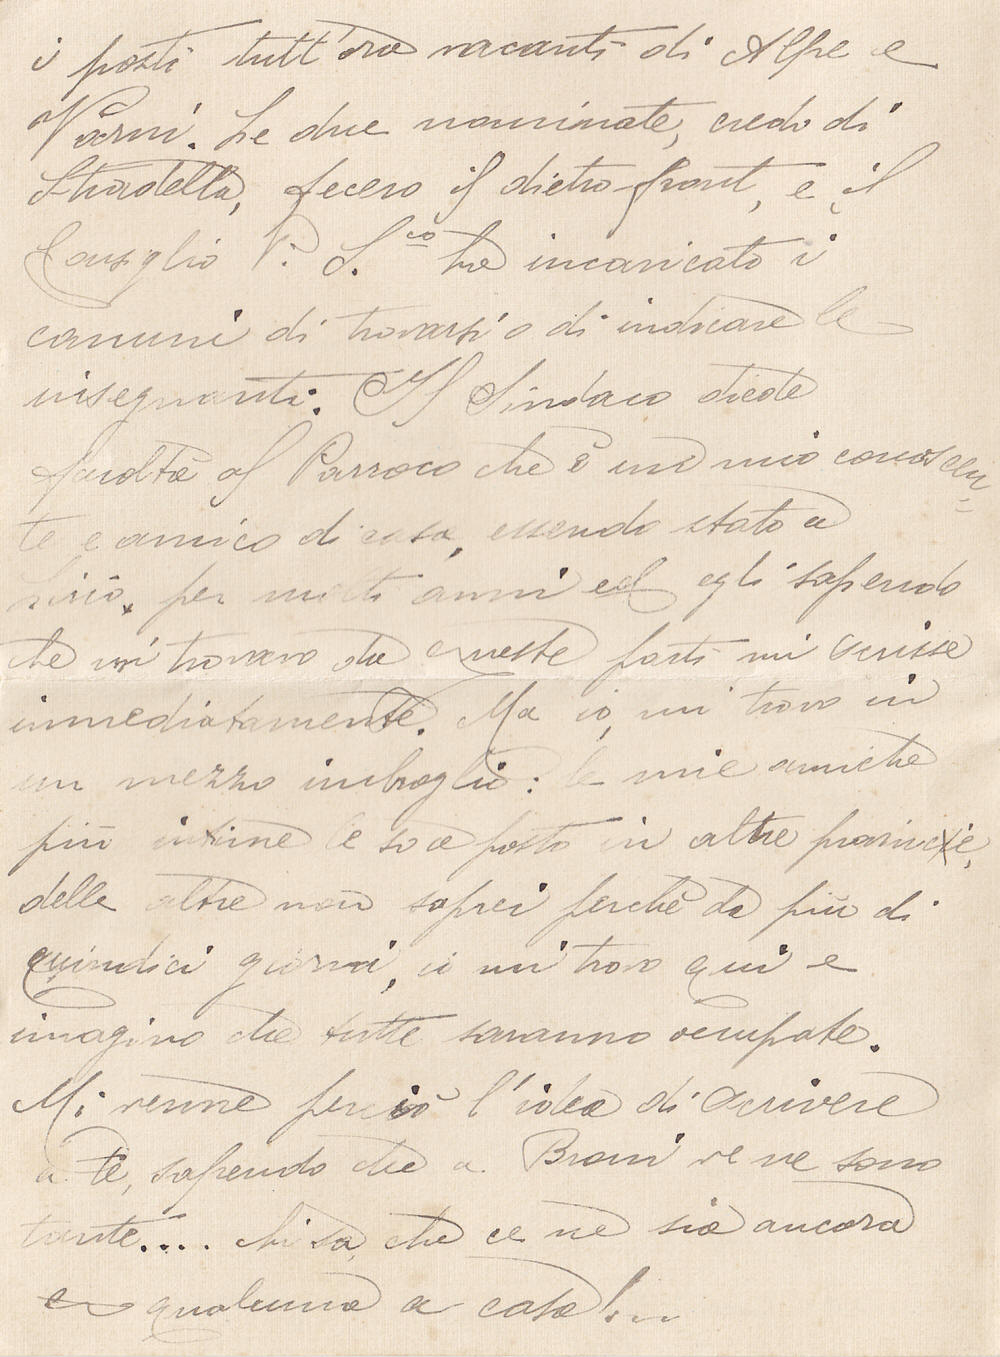 i posti tutt'ora vacanti di Alpe e
Varni. Le due nominate, credo di
Stradella, fecero il dietro-front, e il
Consiglio P. S.co ha incaricato i
comuni di trovarsi o di indicare le
insegnanti. Il Sindaco diede
facoltà al Parroco che è un mio conoscen=
te e amico di casa, essendo stato a
per molti anni ed egli sapendo
che mi trovavo da queste parti mi scrisse
immediatamente. Ma io, mi trovo in
un mezzo imbroglio: le mie amiche
più intime le so a posto in altre provincie,
delle altre non saprei perchè da più di
quindici giorni, io mi trovo qui e
imagino che tutte saranno occupate.
Mi venne perciò l'idea di scrivere
a te, sapendo che a Broni ve ne sono
tante.... chi sa, che ce ne sia ancora
qualcuna a casa!...